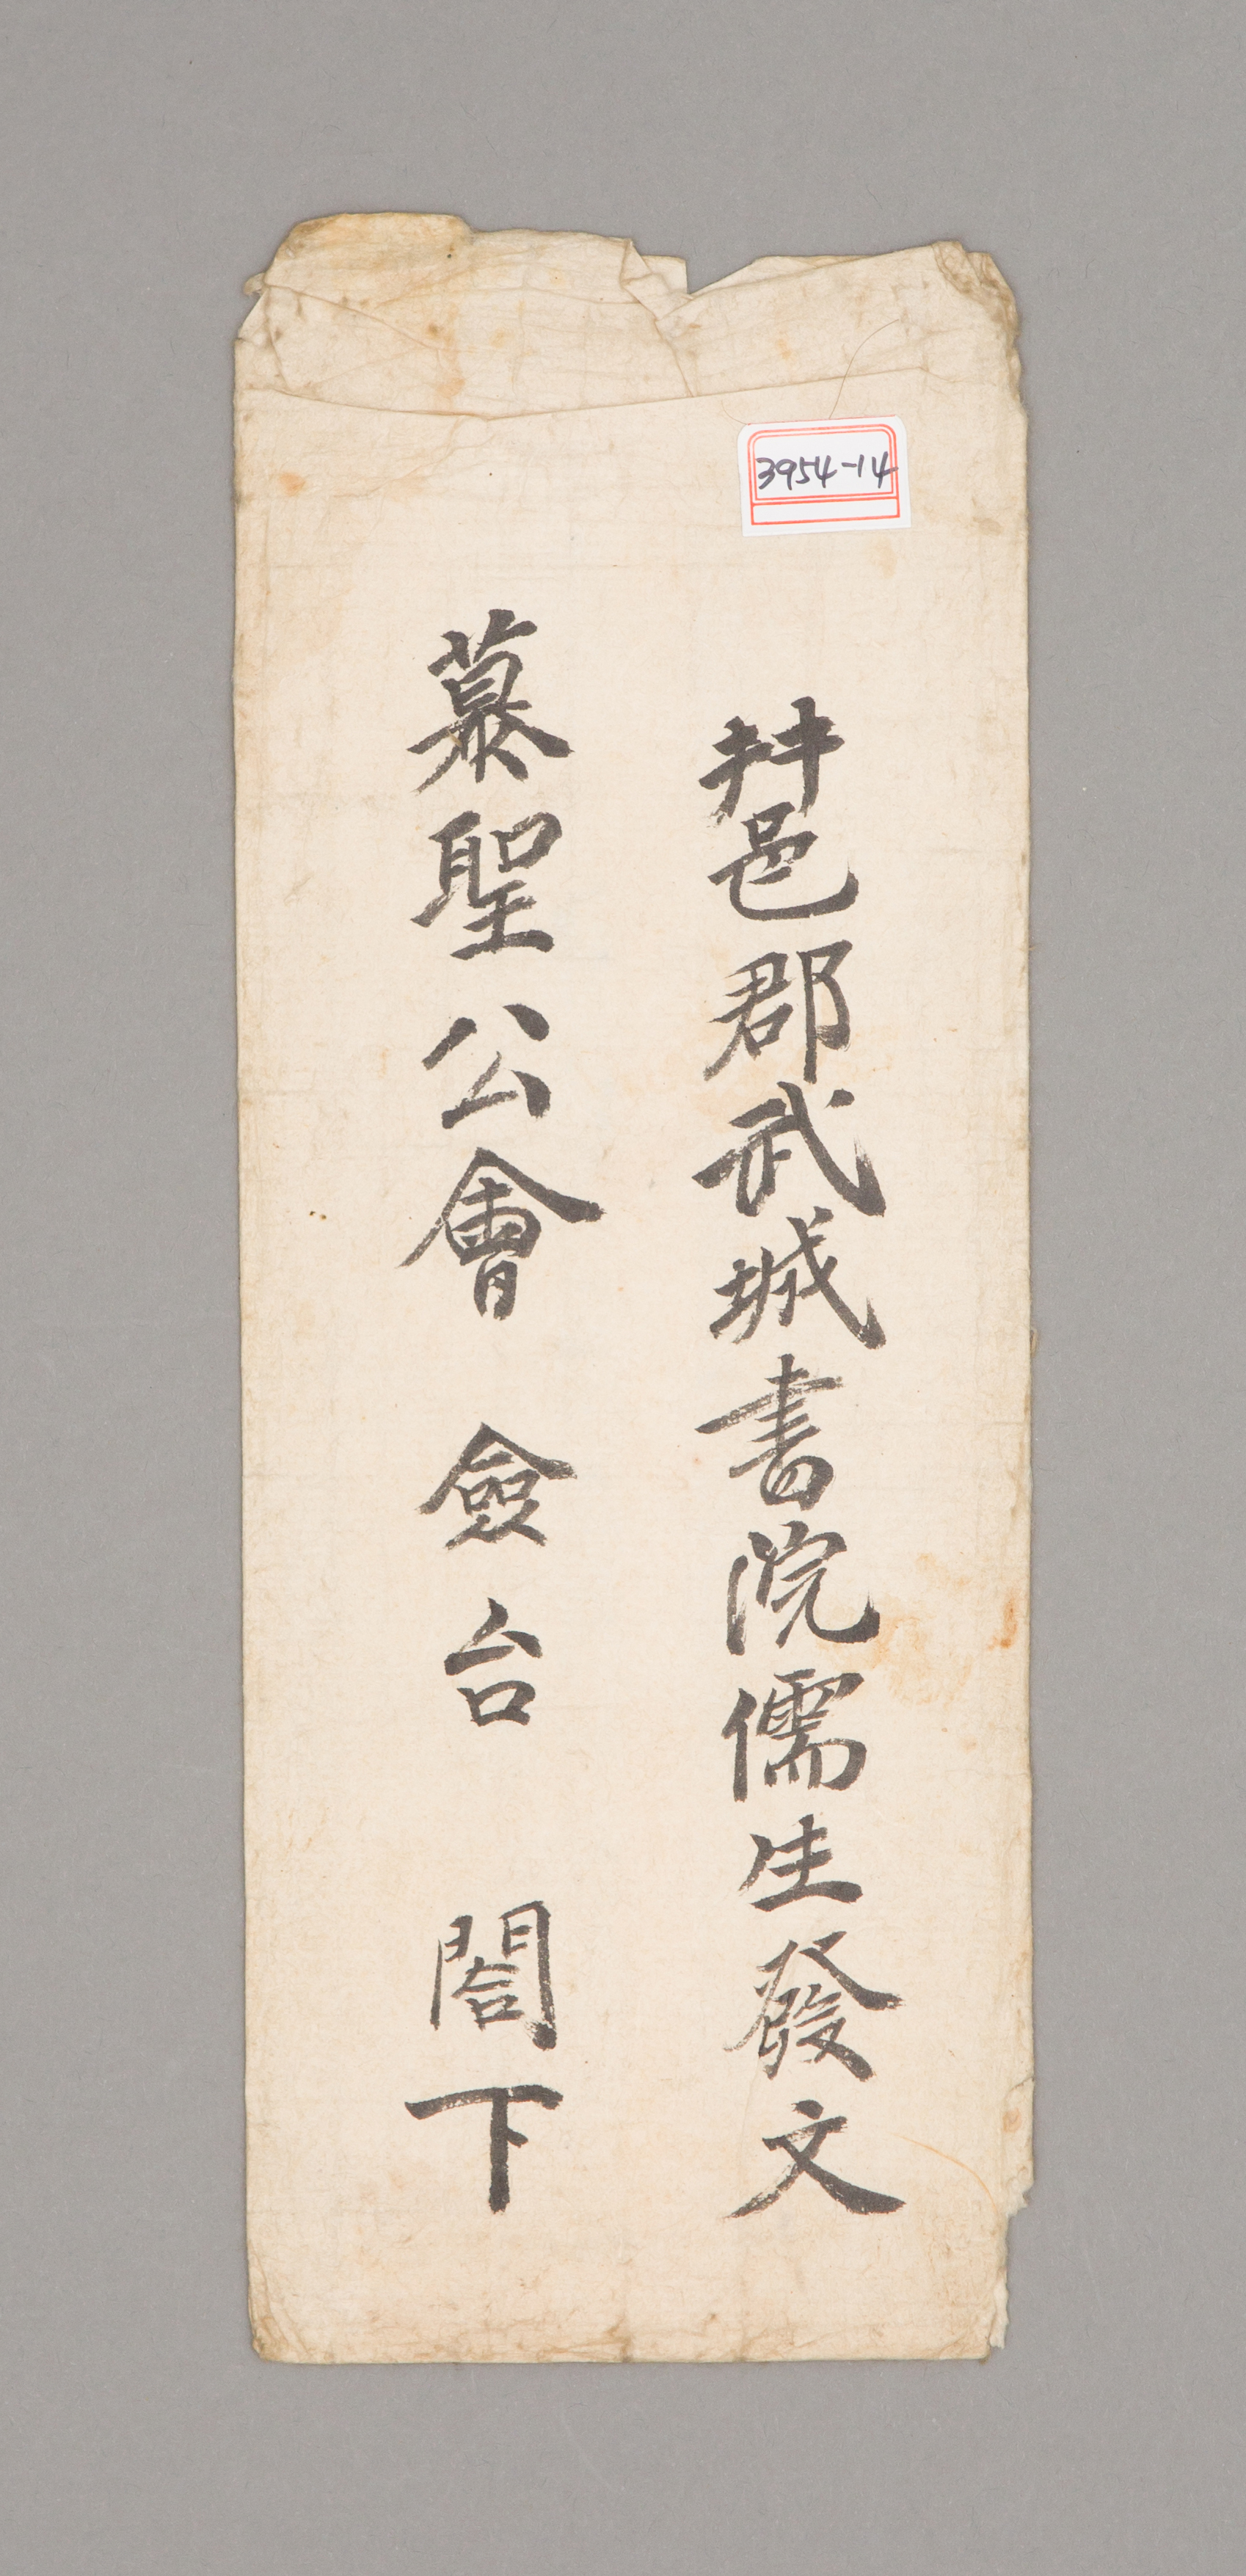 3954-14
井邑郡武城書院儒生發文
慕聖公會 僉台 閤下